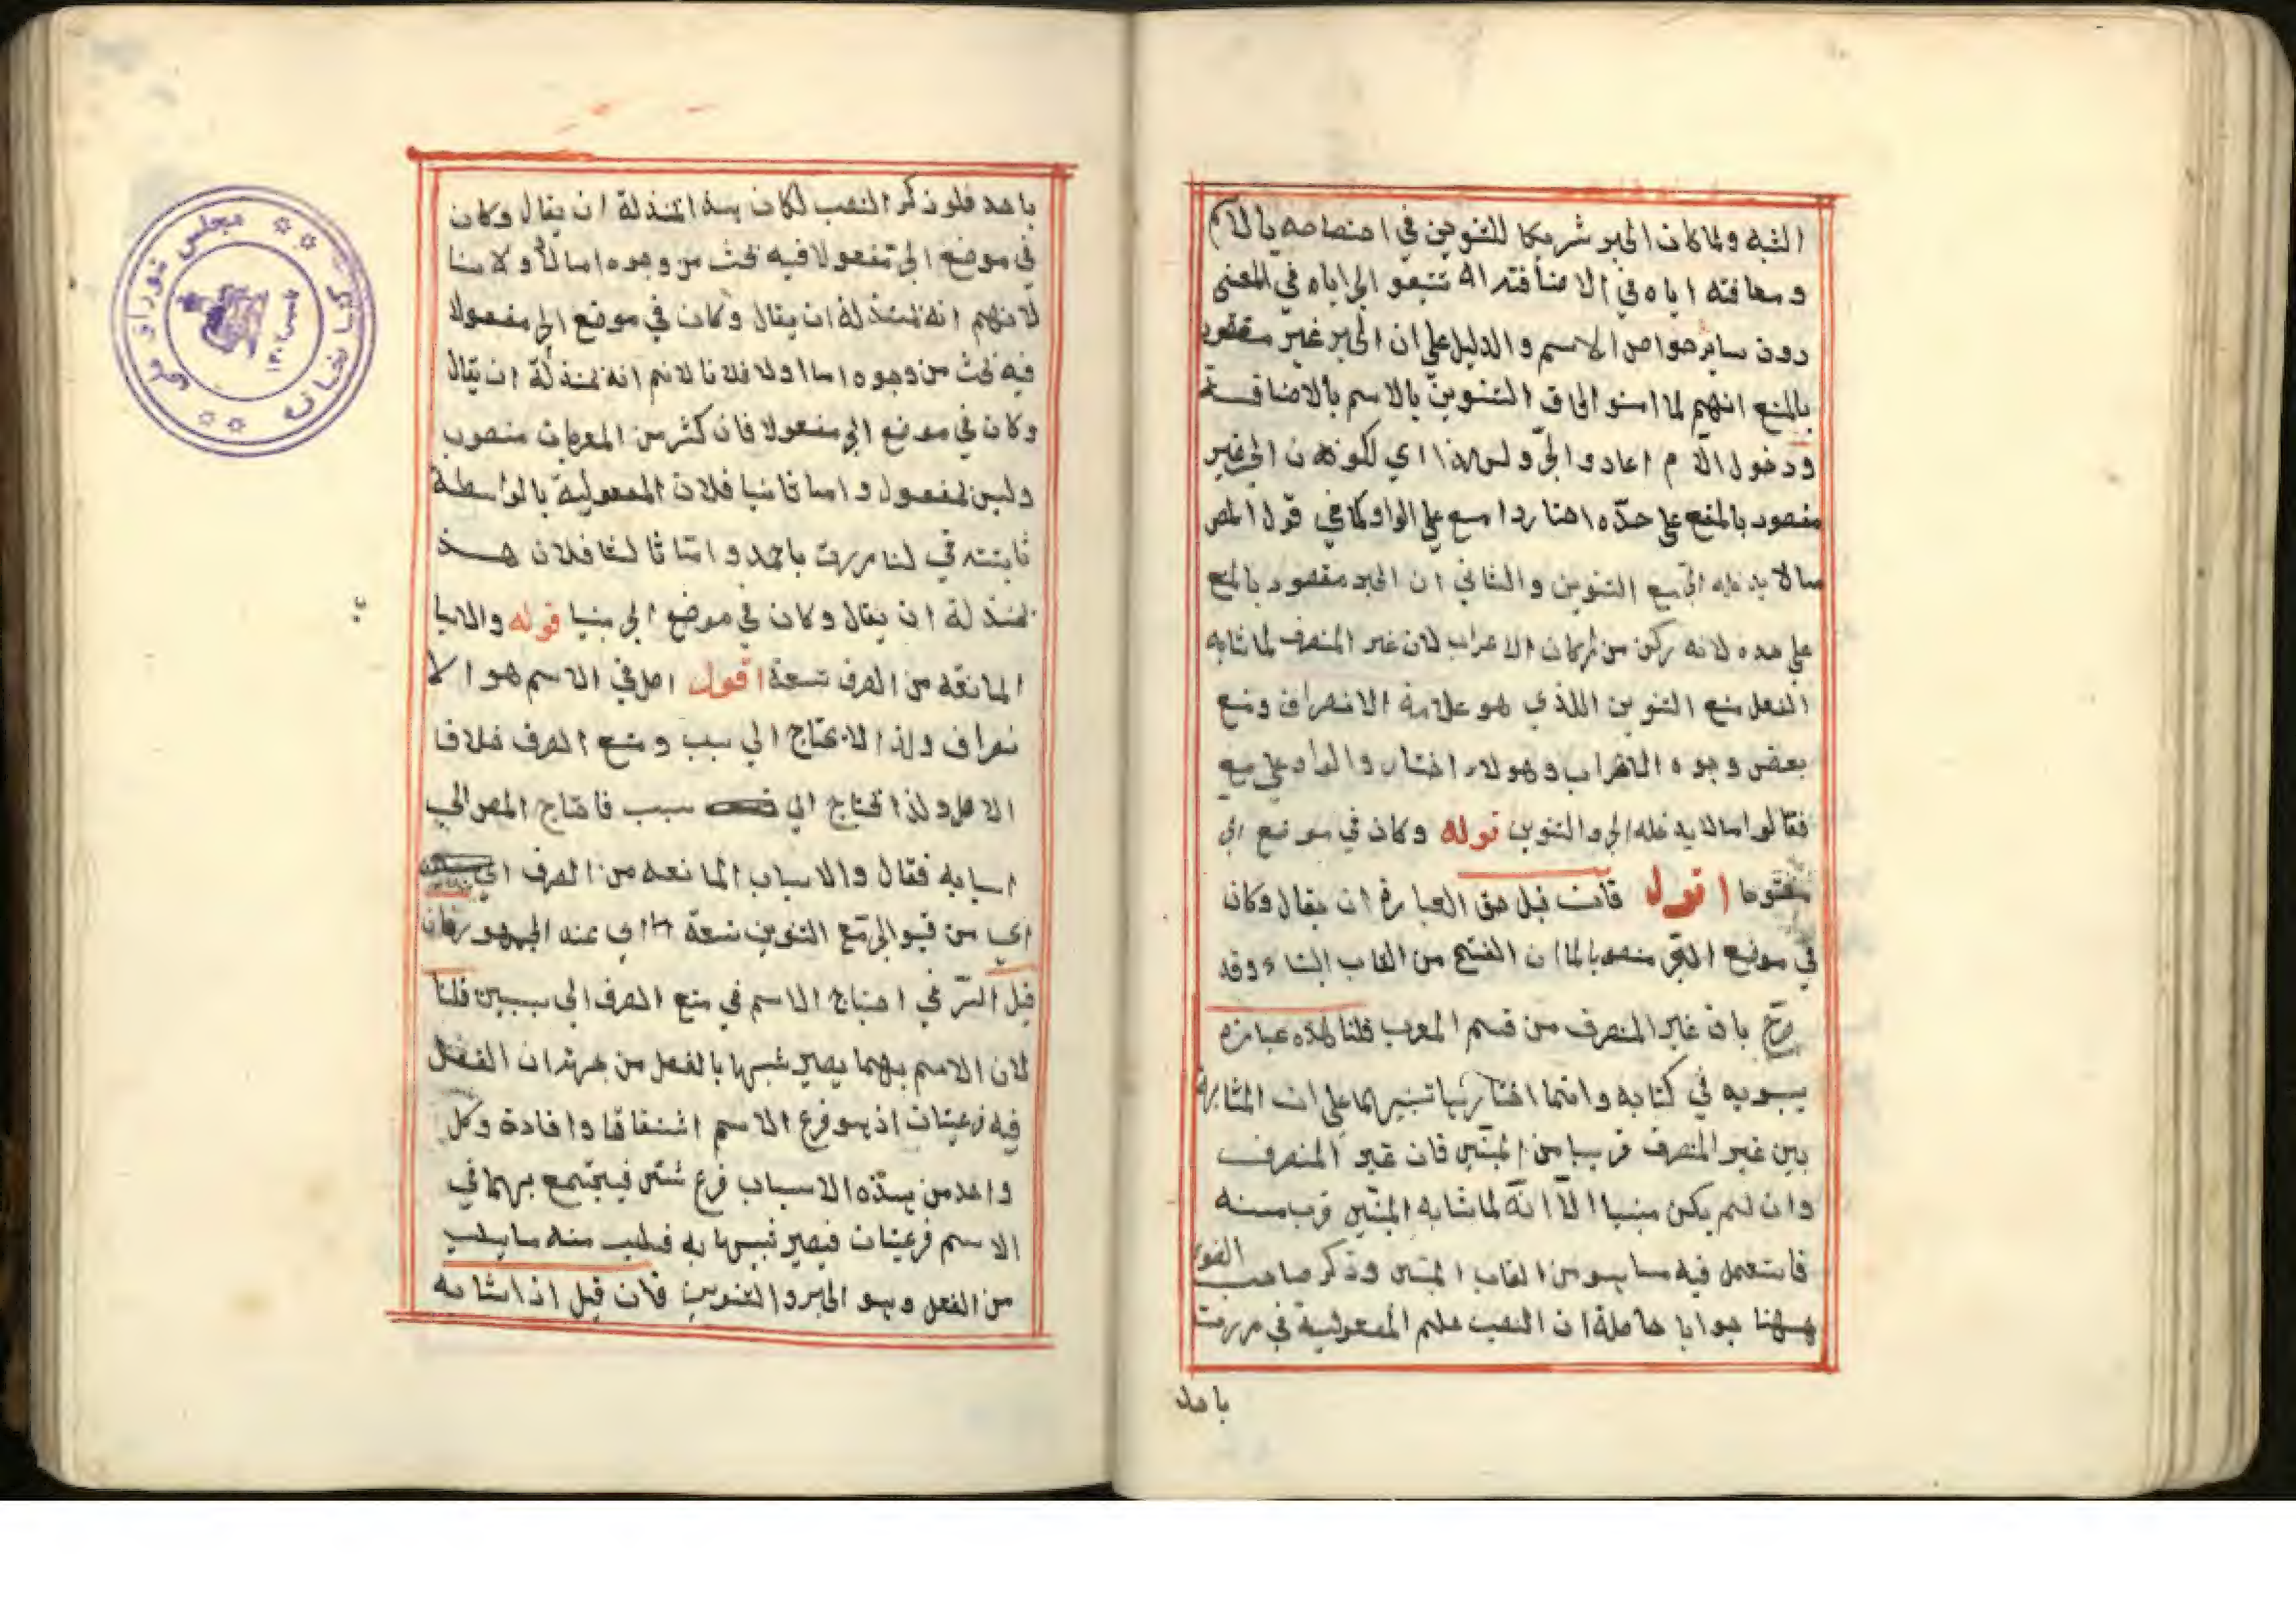 الشبه ولما كان الجر شريكا للتنوين في اختصاصه بالاسم
ومعاقته اياه في الاضافة تتبعو الجر اياه في المعنى
دون ساير خواص الاسم والدليل على ان الجر غير مقصود
بالمنع انهم لما امنو الحاق التنوين بالاسم بالاضافة
ودخول اللام اعادوا الجر ولس هذا اي لكون الجر غير
مقصود بالمنع على حدّه اختار دا مع على الواو كما في قول المص
ما لا يدخله الجر مع التنوين والثاني ان الجر مقصود بالمنع
على حده لانه ركن من اركان الاعراب لان غير المنصرف لما شابه
الفعل منع التنوين اللذي هو علامة الانصراف ومنع
بعض وجوه الاعراب وهولاء اختار والواو على مع
فقالوا مالا يدخله الجر والتنوين قوله وكان في موضع الجر
مفتوحا اقول فان قيل حق العبارة ان يقال وكان
في موضع الجر منصوبا لما ان الفتح من القاب البناء وقد
صرّح بان غير المنصرف من قسم المعرب قلنا هذه عبارة
سيبويه في كتابه وانما اختارها تنبيها على ان المشابهة
بين غير المنصرف قريبا من المبنى فان غير المنصرف
وان لم يكن مبنيا الّا انّه لما شابه المبنى قرب منه
فاستعمل فيه ما يهو من القاب المبنى وذكر صاحب الضوء
ههنا جوابا حاصلة ان النصب علم المفعولية في مررت
باحد
باحمد فلو ذكر النصب لكان بهذا المنزلة ان يقال وكان
في موضع الجر مفعولا فيه بحث من وجوه اما اولا فلانا
لانهم انه بمنزلة ان يقال وكان في موضع الجر مفعولا
فيه بحث من وجوه اما اولا فلانا لانم انه بمنزلة ان يقال
وكان في موضع الجر مفعولا فان كثر من المعربات منصوب
وليس لمفعول واما ثانيا فلان المفعولية بالواسطة
ثابتته في لنا مررت باحمد وامّا ثالثا فلان هذ
بمنزلة ان يقال وكان في موضع الجر مبنيا قوله والاسبا
المانعه من الصرف تسعة اقول اصل في الاسم هو الا
نصراف ولذا لا يحتاج الي سبب ومنع الصرف خلاف
الاصل ولذا تحتاج الي سبب فاحتاج المص الي
اسبابه فقال والاسباب المانعه من الصرف اي
اي من قبو الجر مع التنوين تسعة اي عند الجمهور فان
قيل السّر في احتياج الاسم في منع الصرف الى سببين قلنا
لان الاسم بهما يصير شبيها بالفعل من جهة ان الفعل
فيه فرعيتان اذ يهو فرع الاسم اشتقاقا وافادة وكل
واحد من هذه الاسباب فرع شئ فيجتمع بهما في
الاسم فرعيتان فيصير شبيها به فيسلب منه ما يسلب
من الفعل وهو الجر والتنوين فان قيل اذا شابه
مجلس شوراى ملى
كتابخانه